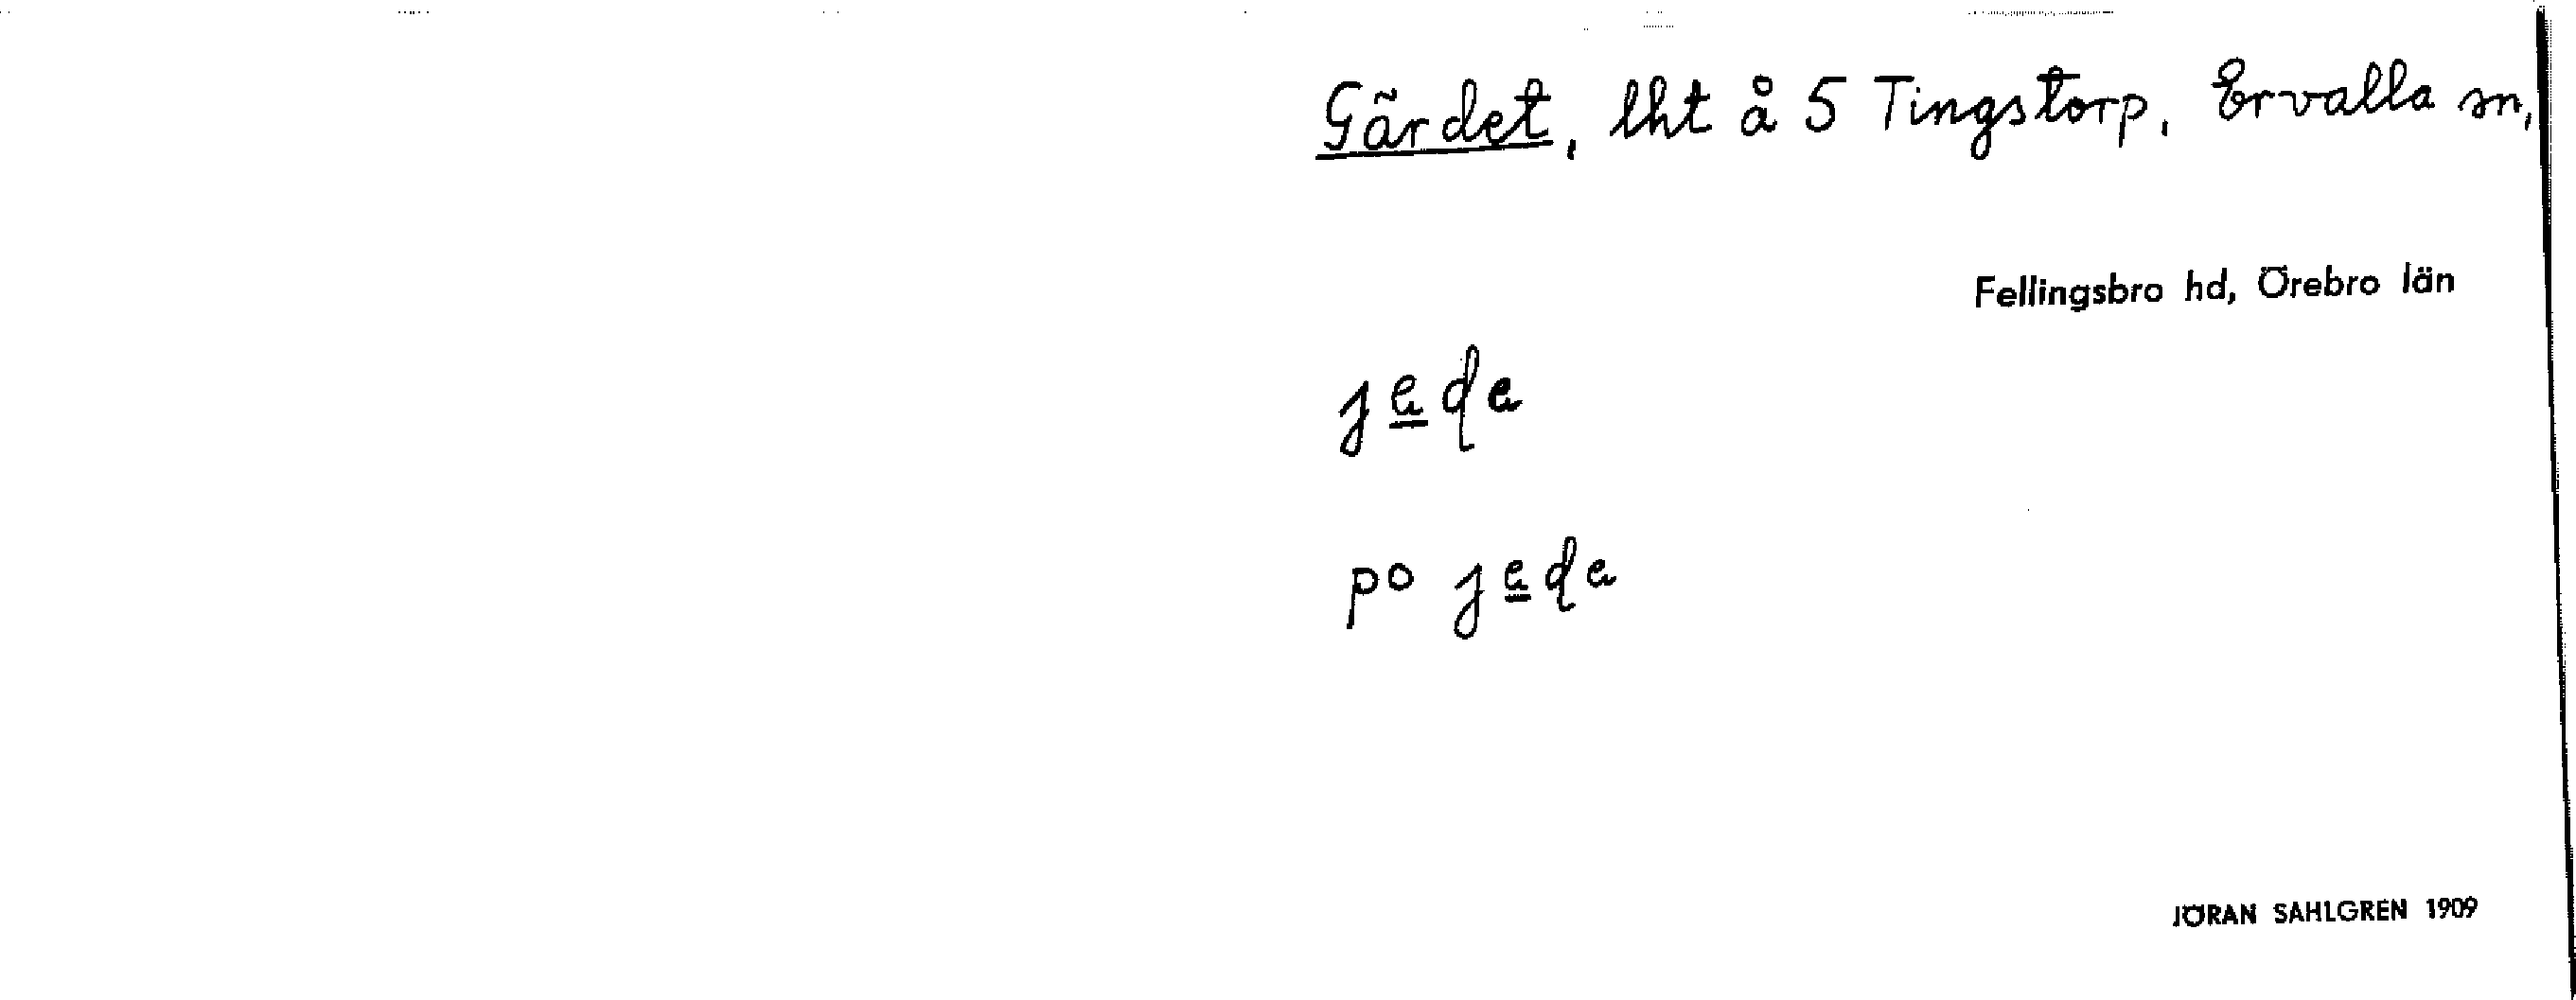 Gärdet, lht å 5 Tingstorp, Ervalla sn,
Fellingsbro hd, Örebro län
jede
po jede
JÖRAN SAHLGREN 1909